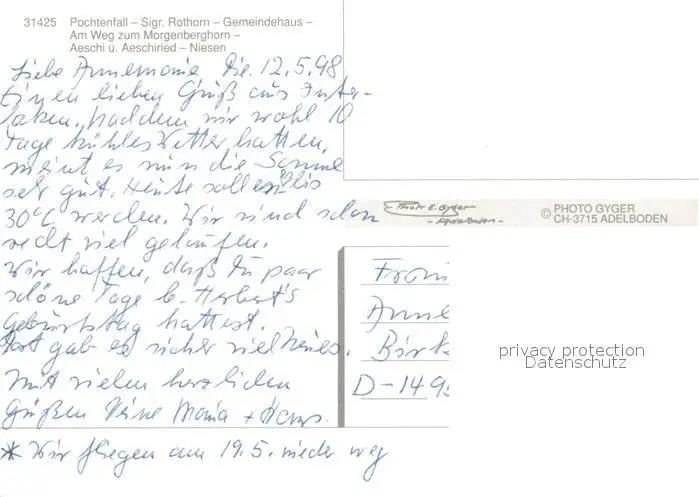 31425 Pochtenfall – Sigr. Rothorn – Gemeindehaus –
Am Weg zum Morgenberghorn –
Aeschi u. Aeschiried – Niesen
Liebe Annemarie Die. 12.5.98
Einen lieben Gruß aus Inter-
laken. Nachdem wir wohl 10
Tage kühles Wetter hatten,
meint es nun die Sonne
sehr gut. Heute sollen bis
30°C werden. Wir sind schon
recht viel gelaufen.
Wir hoffen, daß Du paar
schöne Tage b. Herbert's
Geburtstag hattest.
Dort gab es sicher viel Neues.
Mit vielen herzlichen
Grüßen Deine Maria + Hans.
* Wir fliegen am 19.5. wieder weg
Photo E. Gyger
- Adelboden -
© PHOTO GYGER
CH-3715 ADELBODEN
Frau
Anne
Birk
D-149
privacy protection
Datenschutz